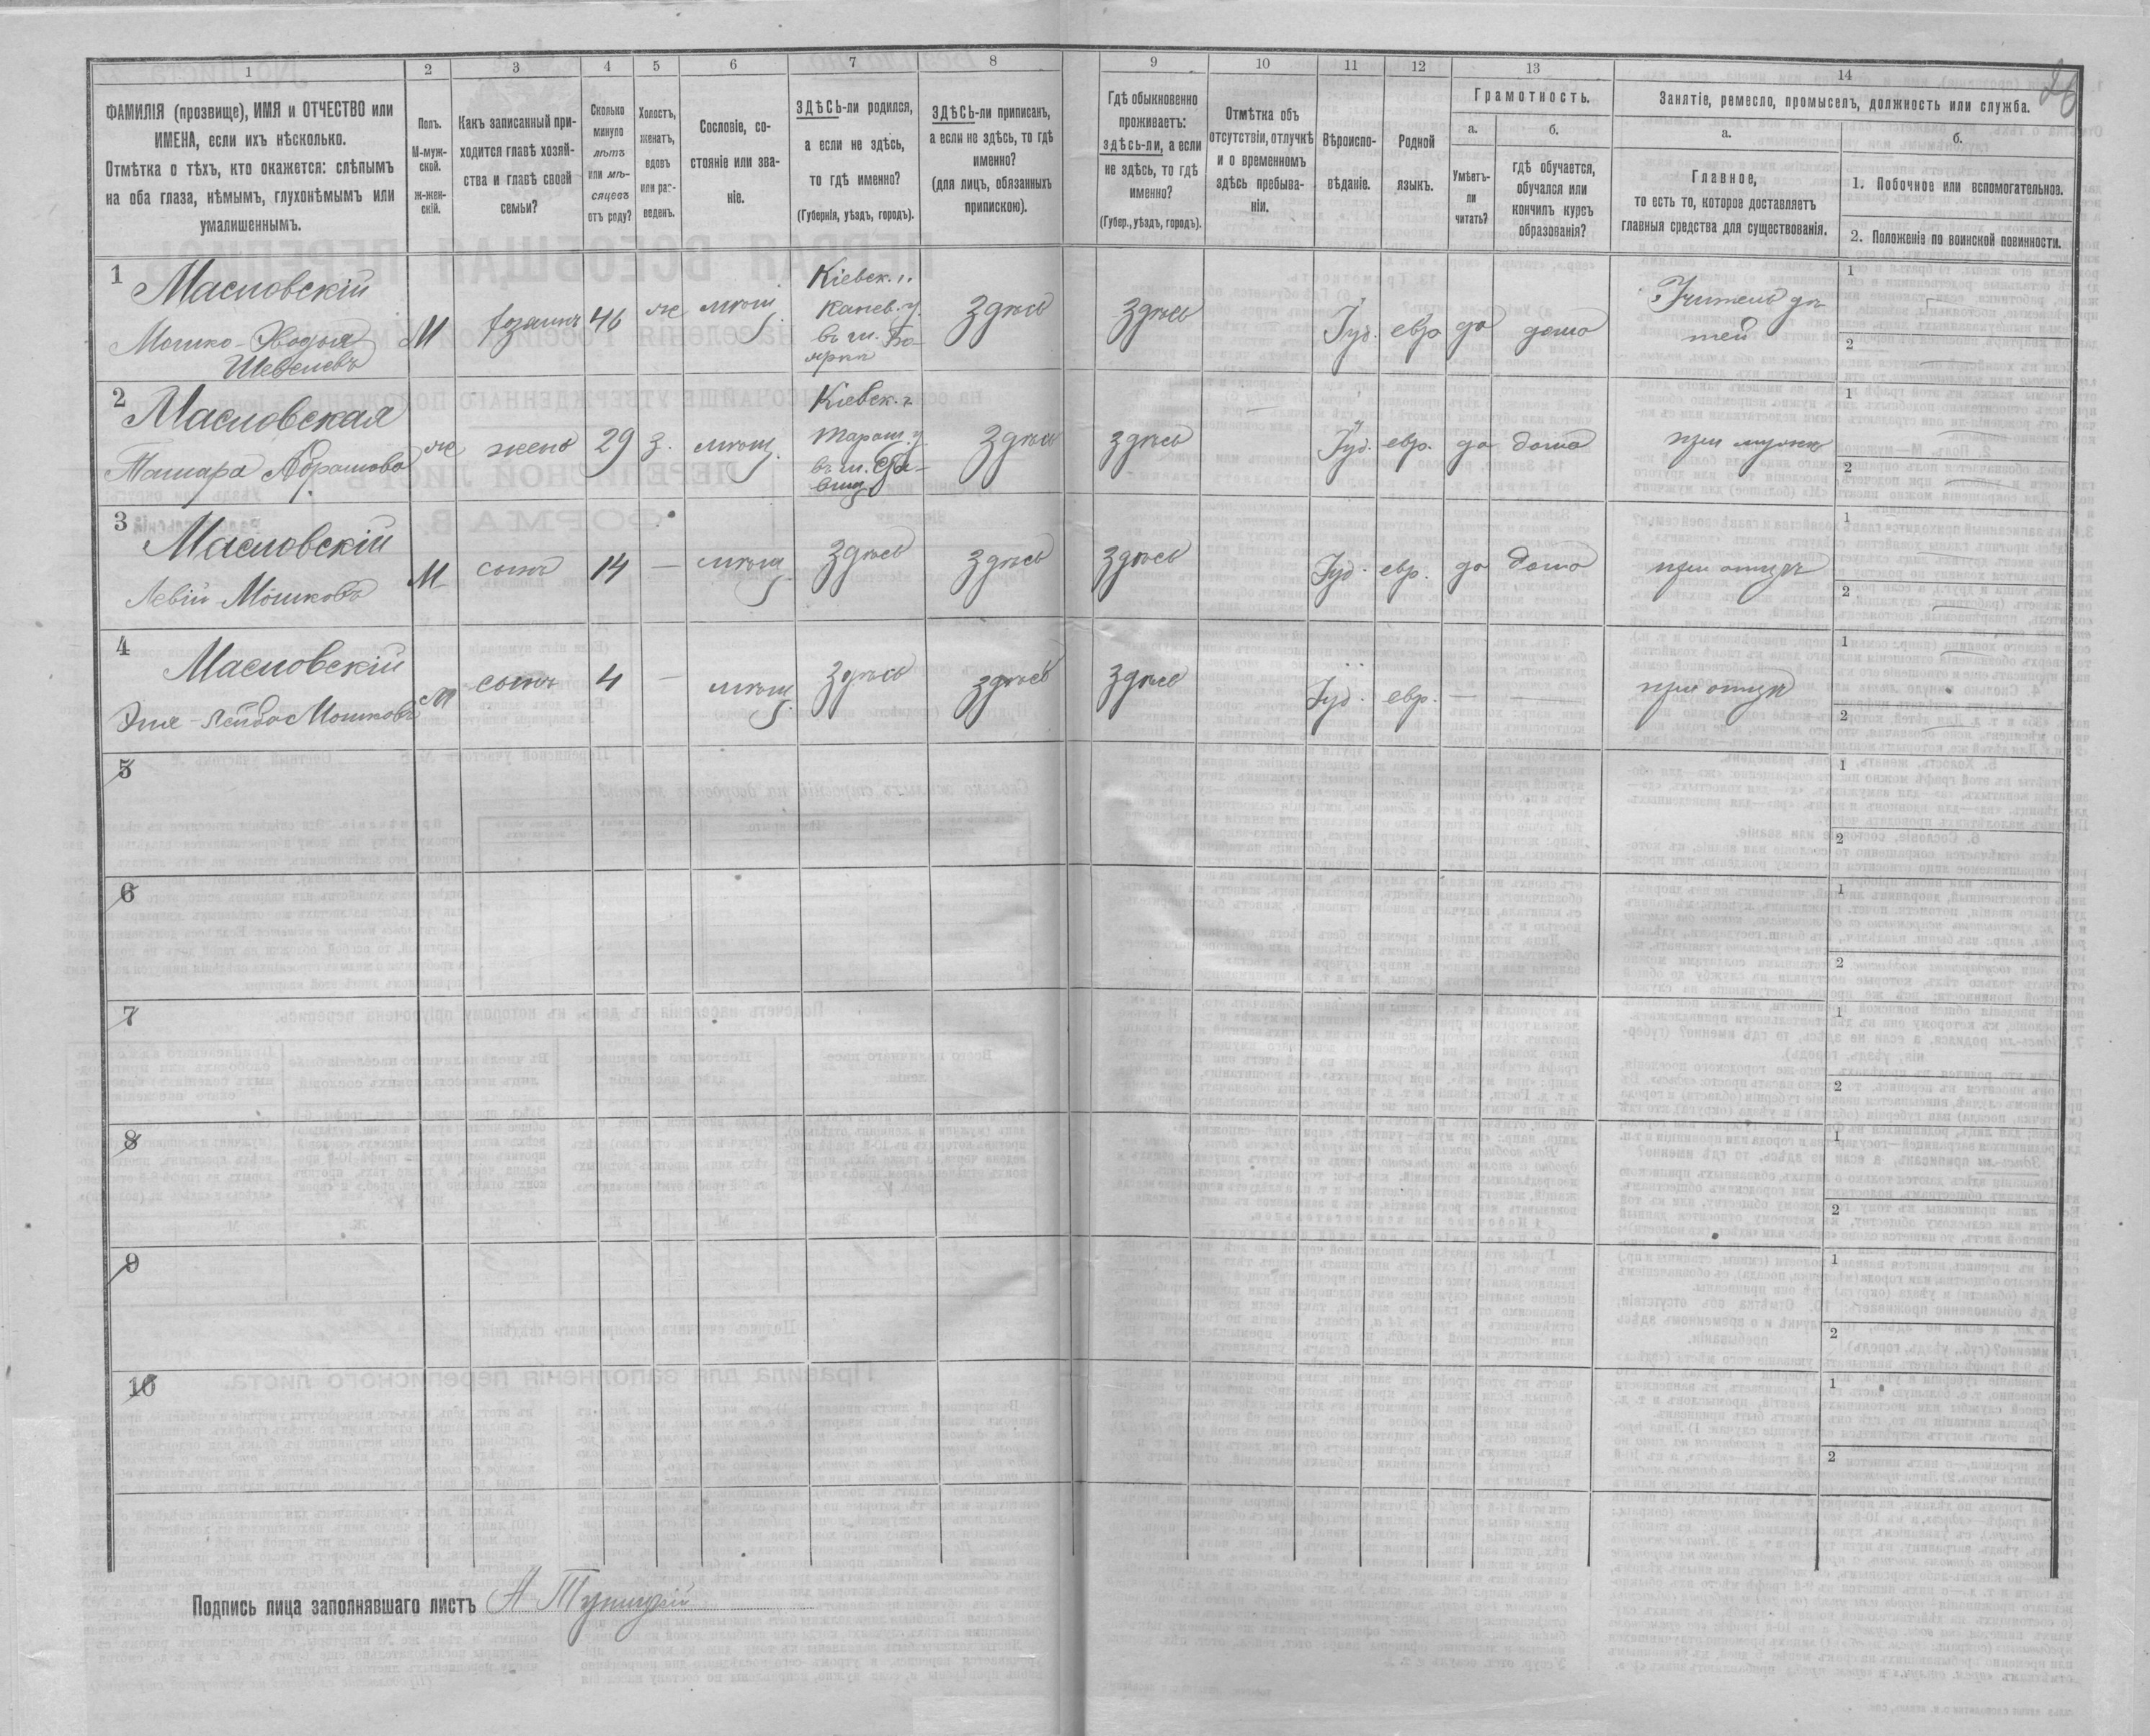 1
2
3
4
5
6
7
8
9
10
11
12
13
14
ФАМИЛІЯ (прозвище), ИМЯ и ОТЧЕСТВО или
ИМЕНА, если ихъ нѣсколько.
Отмѣтка о тѣхъ, кто окажется: слѣпымъ
на оба глаза, нѣмымъ, глухонѣмымъ или
умалишеннымъ.
Полъ.
М-муж-
ской.
Ж-жен-
скій.
Какъ записанный при-
ходится главѣ хозяй-
ства и главѣ своей
семьи?
Сколько
минуло
лѣтъ
или мѣ-
сяцевъ
отъ роду?
Холостъ,
женатъ,
вдовъ
или раз-
веденъ.
Сословіе, со-
стояніе или зва-
ніе.
ЗДѢСЬ-ли родился,
а если не здѣсь,
то гдѣ именно?
(Губернія, уѣздъ, городъ).
ЗДѢСЬ-ли приписанъ,
а если не здѣсь, то гдѣ
именно?
(для лицъ, обязанныхъ
припискою).
Гдѣ обыкновенно
проживаетъ:
здѣсь-ли, а если
не здѣсь, то гдѣ
именно?
(Губер., уѣздъ, городъ).
Отмѣтка объ
отсутствіи, отлучкѣ
и о временномъ
здѣсь пребыва-
ніи.
Вѣроиспо-
вѣданіе.
Родной
языкъ.
Грамотность.
а.
Умѣетъ-
ли
читать?
б.
гдѣ обучается,
обучался или
кончилъ курсъ
образованія?
Занятіе, ремесло, промыселъ, должность или служба.
26
а.
Главное,
то есть то, которое доставляетъ
главныя средства для существованія.
б.
1. Побочное или вспомогательное.
2. Положеніе по воинской повинности.
1
Масловскій
Мошко-
Шевелевъ
М
хозяинъ
46
же
мѣщ.
Кіевск. г.
Канев. у.
въ м. Бо-
ярки
здѣсь
здѣсь
Іуд.
евр
да
дома
Учитель дѣ-
тей
1
2
2
Масловская
Тамара Абрамова
же
жена
29
з.
мѣщ.
Кіевск. г.
Таращ. у.
въ м. Ста-
вищ.
здѣсь
здѣсь
Іуд.
евр.
да
дома
при мужѣ
1
2
3
Масловскій
Левій Мошковъ
М
сынъ
14
—
мѣщ.
здѣсь
здѣсь
здѣсь
Іуд.
евр.
да
дома
при отцѣ
1
2
4
Масловскій
Эля-Лейба Мошковъ
М
сынъ
4
—
мѣщ.
здѣсь
здѣсь
здѣсь
Іуд.
евр.
—
—
при отцѣ
1
2
5
1
2
6
1
2
7
1
2
8
1
2
9
1
2
10
1
2
Подпись лица заполнявшаго листъ